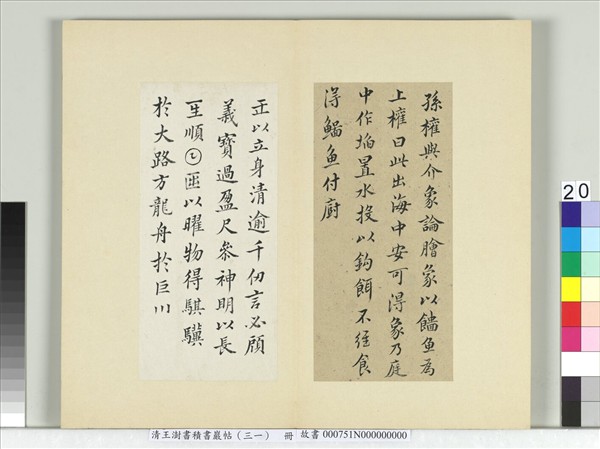 孫權與介象論膾象以鯔魚為
上權曰此出海中安可得象乃庭
中作埳置水投以鈎餌不經食
得鯔魚付廚
正以立身清逾千仞言必顧
義寶過盈尺叅神明以長
𤯔順𡆠𠥱以曜物得騏驥
於大路方龍舟於巨川
清王澍書積書巖帖(三一) 冊 故書 000751N000000000
20